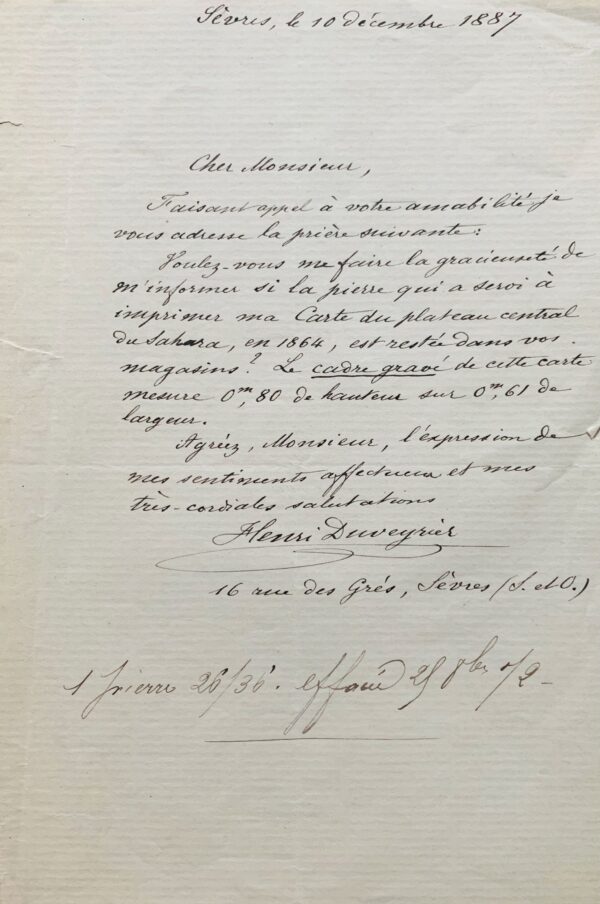 Sèvres, le 10 décembre 1887
Cher Monsieur,
Faisant appel à votre amabilité je
vous adresse la prière suivante :
Voulez-vous me faire la gracieuseté de
m'informer si la pierre qui a servi à
imprimer ma Carte du plateau central
du Sahara, en 1864, est restée dans vos
magasins ? Le cadre gravé de cette carte
mesure 0m,80 de hauteur sur 0m,61 de
largeur.
Agréez, Monsieur, l'expression de
mes sentiments affectueux et mes
très-cordiales salutations
Henri Duveyrier
16 rue des Grés, Sèvres (S. et O.)
1 pierre 26/36. effacé 25 8bre 72